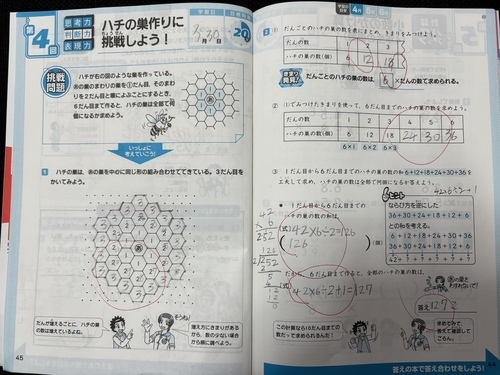 第4回
思考力
判断力
表現力
ハチの巣作りに
挑戦しよう!
学習日
3月30日
20
挑戦問題
ハチが右の図のような巣を作っている。
あの巣のまわりの巣を①だん目、そのまわ
りを2だん目と順によぶことにするとき、
6だん目まで作ると、ハチの巣は全部で何
個になるか求めよう。
いっしょに
考えていこう!
1 ハチの巣は、あの巣を中心に同じ形の組み合わせてできている。3だん目を
かいてみよう。
だんが増えるごとに、ハチの巣
の数は増えているよね。
そうね!
増え方にきまりがあるか
から、数の少ない場合
から順に調べよう。
45
4月
2 (1) だんごとのハチの巣の数を表にまとめ、きまりを見つけよう。
だんの数 1 2 3
ハチの巣の数(個) 6 12 18
きまり発見!
だんごとのハチの巣の数は、6×だんの数で求められる。
(2) (1)でみつけたきまりを使って、6だん目までのハチの巣の数を求めよう。
だんの数 1 2 3 4 5 6
ハチの巣の数(個) 6 12 18 24 30 36
6×1 6×2 6×3
(3) 1だん目から6だん目までのハチの巣の数の和6+12+18+24+30+36を
工夫して求め、ハチの巣の数は全部で何個になるか答えよう。
1だん目から6だん目までの
ハチの巣の数の和は、
(式) 42×6÷2=126
126 (個)
ヒント
ならび方を逆にした
36+30+24+18+12+6
との和を考える。
6+12+18+24+30+36
36+30+24+18+12+6
42
× 6
252
126
2)252
だから、6だん目まで作ると、全部のハチの巣の数は、
(式) 42×6÷2+1=127
あの巣を
わすれないで!
答え 127
この計算なら10だん目までの
数だって求められるんだ!
答えの本で答え合わせをしよう!